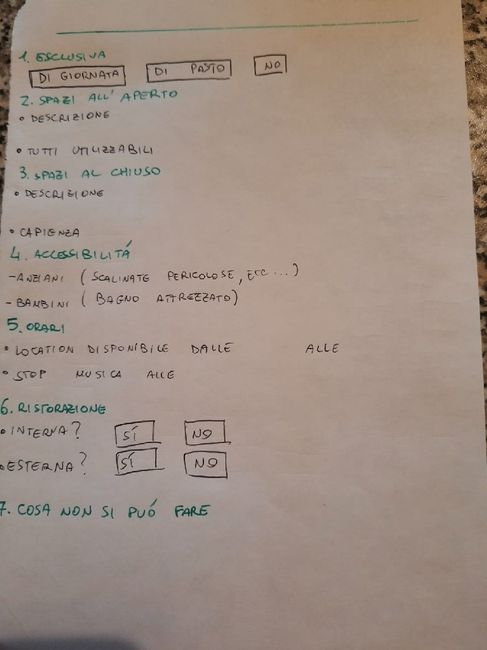 1. ESCLUSIVA
DI GIORNATA DI PASTO NO
2. SPAZI ALL' APERTO
• DESCRIZIONE
• TUTTI UTILIZZABILI
3. SPAZI AL CHIUSO
• DESCRIZIONE
• CAPIENZA
4. ACCESSIBILITÁ
- ANZIANI (SCALINATE PERICOLOSE, ETC...)
- BAMBINI (BAGNO ATTREZZATO)
5. ORARI
• LOCATION DISPONIBILE DALLE ALLE
• STOP MUSICA ALLE
6. RISTORAZIONE
• INTERNA? SÍ NO
• ESTERNA? SÍ NO
7. COSA NON SI PUÓ FARE